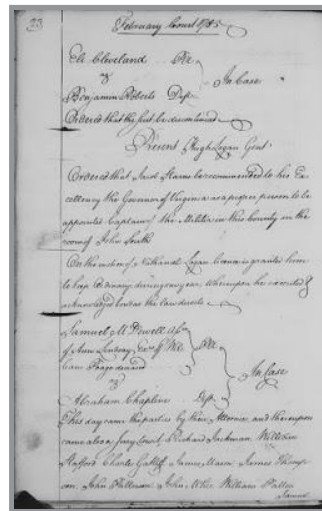 23
February Court 1785
Eli Cleveland Ple
vs In Case
Benjamin Roberts Deft
Ordered that the suit be discontinued
Present Hugh Logan Gent.
Ordered that Jacob Starns be recommended to his Ex
cellency the Governor of Virginia as a proper person to be
appointed Captain of the Militia in this County in the
room of John Smith
On the motion of Nathaniel Logan licence is granted him
to keep Ordinary during one year Whereupon he executed &
acknowledged bond as the law directs
Samuel McDowell
of Ann Lindsay Exx of Wil Ple
liam Pogue deceased In Case
vs
Abraham Chapline Deft
This day came the parties by their Attornies and thereupon
came also a Jury towit Richard Jackman William
Stafford Charles James Mason James Thomp
son John William
James